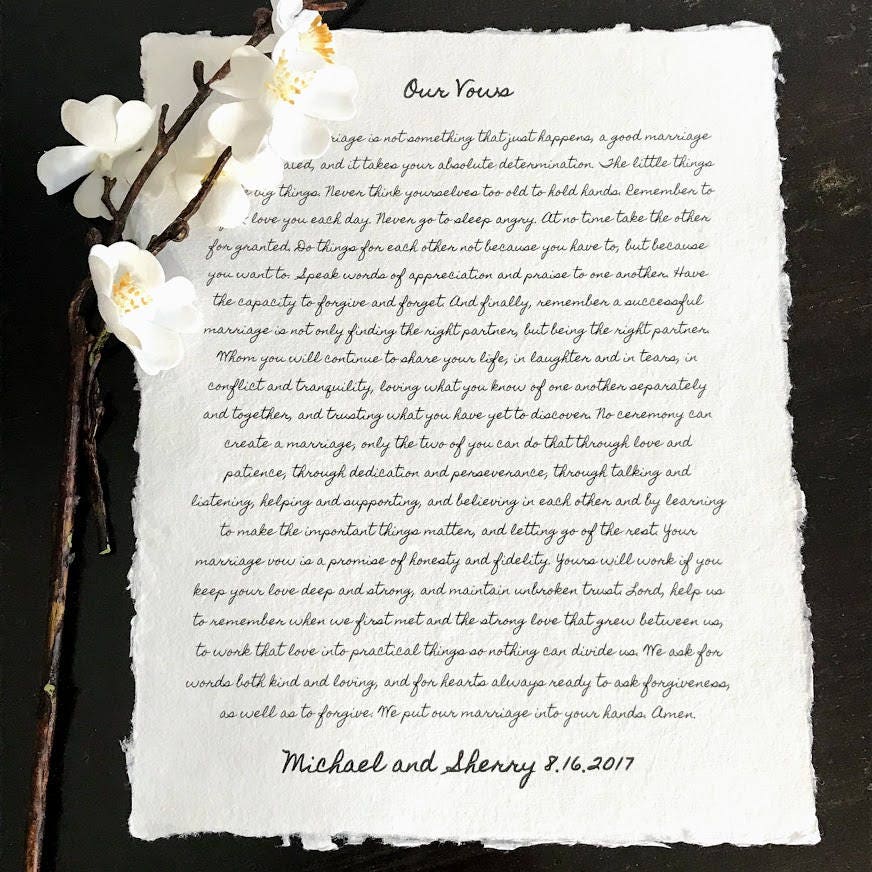 Our Vows
riage is not something that just happens, a good marriage
and it takes your absolute determination. The little things
big things. Never think yourselves too old to hold hands. Remember to
love you each day. Never go to sleep angry. At no time take the other
for granted. Do things for each other not because you have to, but because
you want to. Speak words of appreciation and praise to one another. Have
the capacity to forgive and forget. And finally, remember a successful
marriage is not only finding the right partner, but being the right partner.
Whom you will continue to share your life, in laughter and in tears, in
conflict and tranquility, loving what you know of one another separately
and together, and trusting what you have yet to discover. No ceremony can
create a marriage, only the two of you can do that through love and
patience, through dedication and perseverance, through talking and
listening, helping and supporting, and believing in each other and by learning
to make the important things matter, and letting go of the rest. Your
marriage vow is a promise of honesty and fidelity. Yours will work if you
keep your love deep and strong, and maintain unbroken trust. Lord, help us
to remember when we first met and the strong love that grew between us,
to work that love into practical things so nothing can divide us. We ask for
words both kind and loving, and for hearts always ready to ask forgiveness,
as well as to forgive. We put our marriage into your hands. Amen.
Michael and Sherry 8.16.2017